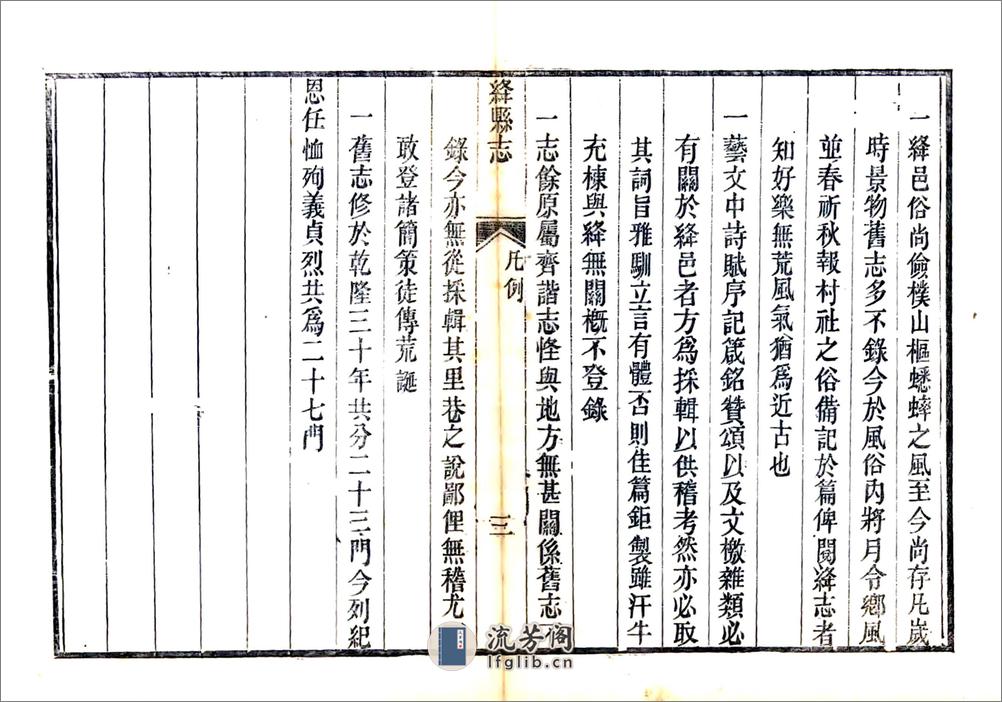 一絳邑俗尚儉樸山樞蟋蟀之風至今尚存凡歲
時景物舊志多不錄今於風俗內將月令鄉風
並春祈秋報村社之俗備記於篇俾閱絳志者
知好樂無荒風氣猶爲近古也
一藝文中詩賦序記箴銘贊頌以及文檄雜類必
有關於絳邑者方爲採輯以供稽考然亦必取
其詞旨雅馴立言有體否則佳篇鉅製雖汗牛
充棟與絳無關概不登錄
一志餘原屬齊諧志怪與地方無甚關係舊志
絳縣志
凡例
三
錄今亦無從採輯其里巷之說鄙俚無稽尤
敢登諸簡策徒傳荒誕
一舊志修於乾隆三十年共分二十三門今列紀
恩任恤殉義貞烈共爲二十七門
流芳閣
lfglib.cn